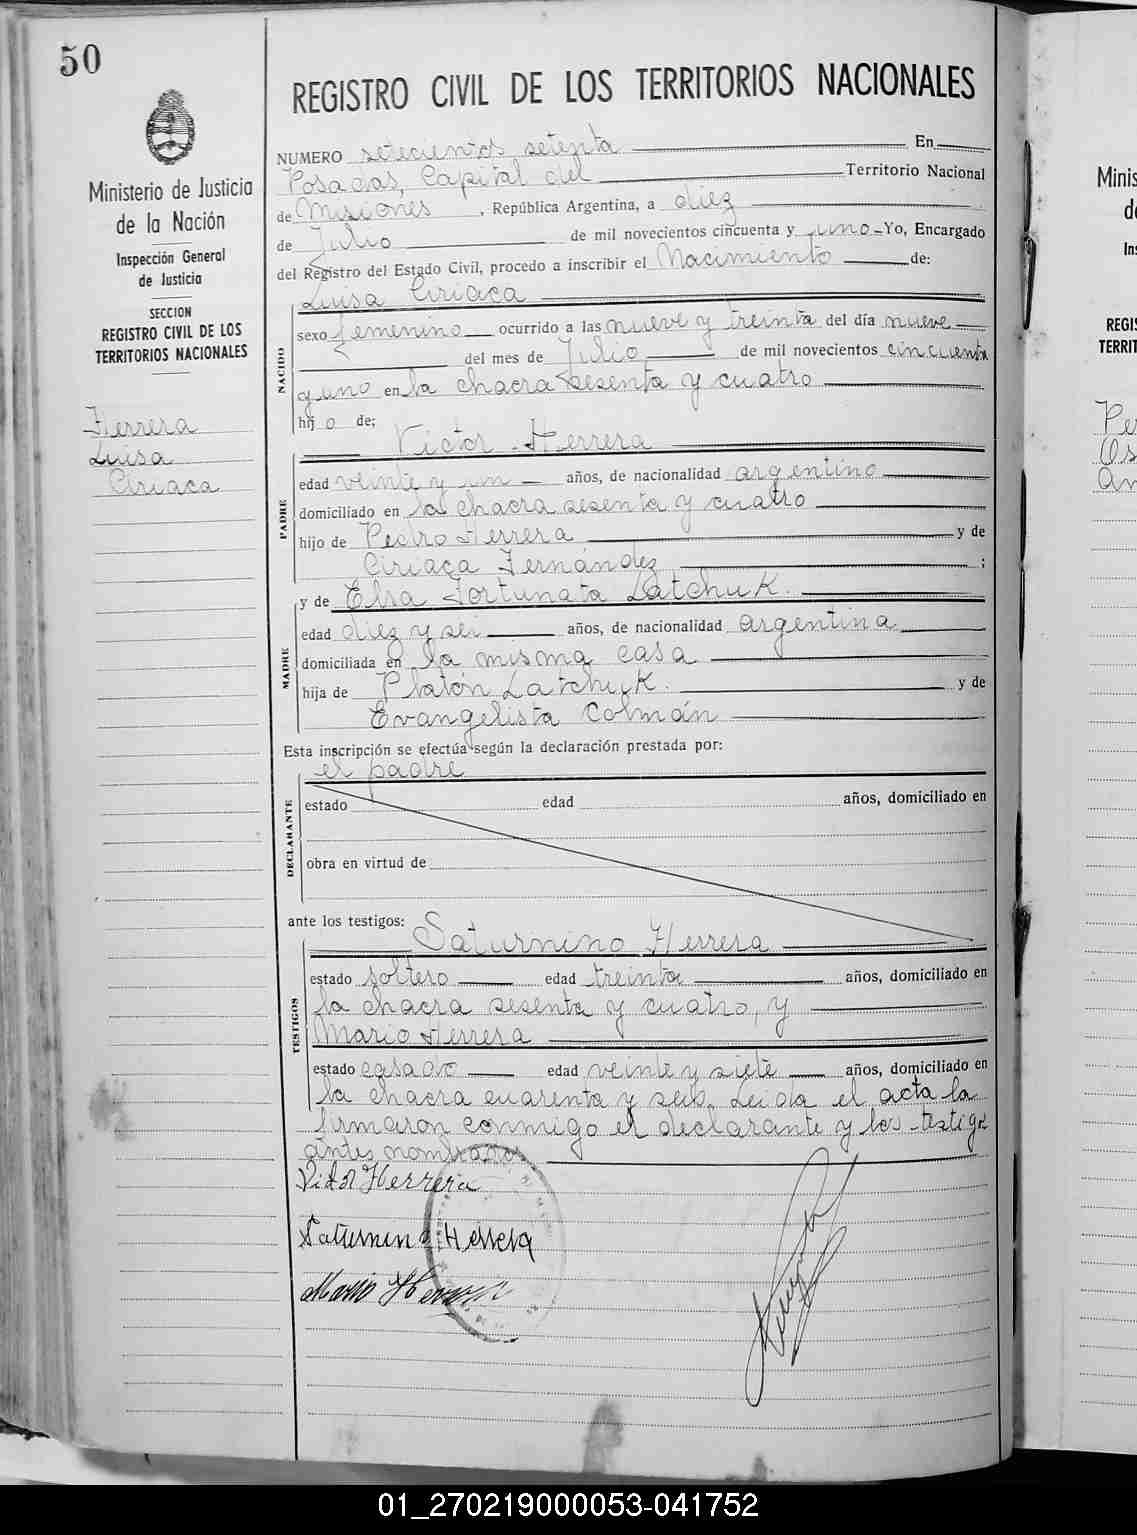 50
REGISTRO CIVIL DE LOS TERRITORIOS NACIONALES
Ministerio de Justicia
de la Nación
Inspección General
de Justicia
SECCION
REGISTRO CIVIL DE LOS
TERRITORIOS NACIONALES
Herrera
Luisa
Ciriaca
NUMERO setecientos setenta En
Posadas, Capital del Territorio Nacional
de Misiones, República Argentina, a diez
de Julio de mil novecientos cincuenta y uno Yo, Encargado
del Registro del Estado Civil, procedo a inscribir el Nacimiento de:
Luisa Ciriaca
NACIDO
sexo femenino ocurrido a las nueve y treinta del día nueve
del mes de Julio de mil novecientos cincuenta
y uno en la chacra sesenta y cuatro
hijo de;
Victor Herrera
PADRE
edad veinte y un años, de nacionalidad argentino
domiciliado en la chacra sesenta y cuatro
hijo de Pedro Herrera y de
Ciriaca Fernández ;
y de Elsa Fortunata Latchuk.
MADRE
edad diez y seis años, de nacionalidad argentina
domiciliada en la misma casa
hija de Platón Latchuk. y de
Evangelista Colmán
Esta inscripción se efectúa según la declaración prestada por:
el padre
DECLARANTE
estado edad años, domiciliado en
obra en virtud de
ante los testigos:
Saturnino Herrera
TESTIGOS
estado soltero edad treinta años, domiciliado en
la chacra sesenta y cuatro, y
Mario Herrera
estado casado edad veinte y siete años, domiciliado en
la chacra cuarenta y seis. Leída el acta la
firmaron conmigo el declarante y los testigos
antes nombrados
Victor Herrera
Saturnino Herrera
Mario Herrera
Minis
de
Ins
REGIS
TERRIT
Pe
Os
An
01_270219000053-041752